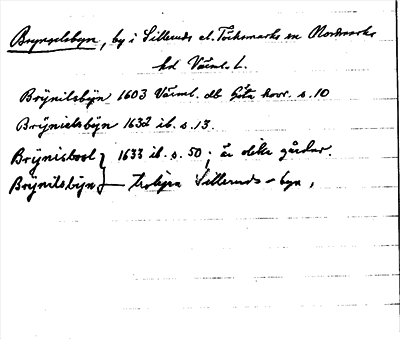 Bryngelsbyn, by i Silleruds el. Töcksmarks en Nordmarks
hd Värml. L.
Brÿnilsbÿn 1603 Värml. db Göta kovr. s. 10
Brÿnielsbÿn 1632 ib. s. 13.
Brÿnisbool } 1633 ib. s. 50; är dika gårdar.
Brÿnilsbÿn } Silleruds-byn,